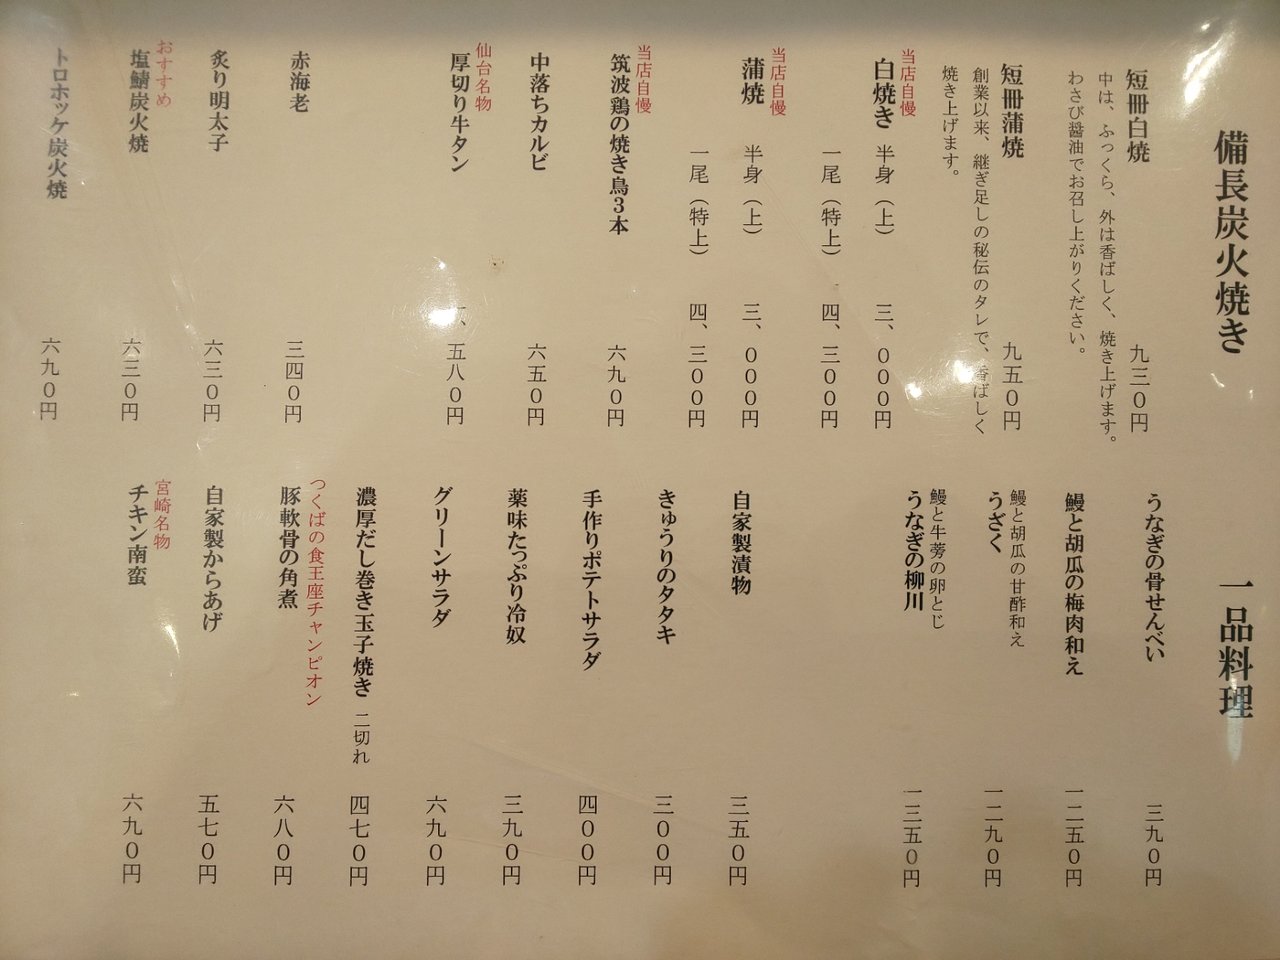 備長炭火焼き
短冊白焼 九三〇円
中は、ふっくら、外は香ばしく、焼き上げます。
わさび醤油でお召し上がりください。
短冊蒲焼 九五〇円
創業以来、継ぎ足しの秘伝のタレで、香ばしく
焼き上げます。
当店自慢
白焼き 半身（上） 三、〇〇〇円
一尾（特上） 四、三〇〇円
当店自慢
蒲焼 半身（上） 三、〇〇〇円
一尾（特上） 四、三〇〇円
当店自慢
筑波鶏の焼き鳥3本 六九〇円
中落ちカルビ 六五〇円
仙台名物
厚切り牛タン 一、五八〇円
赤海老 三四〇円
炙り明太子 六三〇円
おすすめ
塩鯖炭火焼 六三〇円
トロホッケ炭火焼 六九〇円
一品料理
うなぎの骨せんべい 三九〇円
鰻と胡瓜の梅肉和え 一二五〇円
鰻と胡瓜の甘酢和え
うざく 一二九〇円
鰻と牛蒡の卵とじ
うなぎの柳川 一三五〇円
自家製漬物 三五〇円
きゅうりのタタキ 三〇〇円
手作りポテトサラダ 四〇〇円
薬味たっぷり冷奴 三九〇円
グリーンサラダ 六九〇円
濃厚だし巻き玉子焼き 二切れ 四七〇円
つくばの食王座チャンピオン
豚軟骨の角煮 六八〇円
自家製からあげ 五七〇円
宮崎名物
チキン南蛮 六九〇円